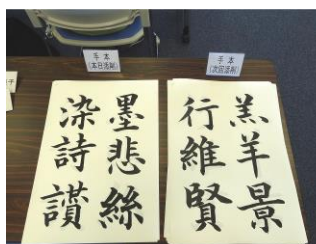 手本
(本日活動)
手本
(次回活動)
墨悲絲
染詩讃
羔羊景
行維賢